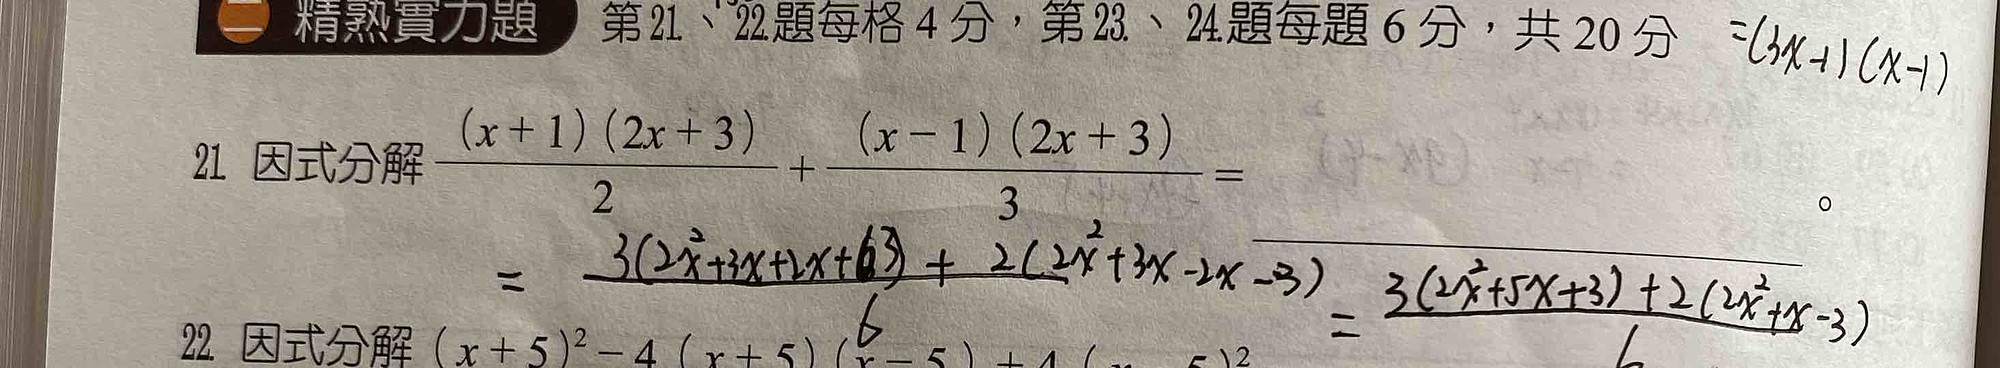 二 精熟實力題 第21、22題每格4分，第23、24題每題6分，共20分 =(3x-1)(x-1)
21 因式分解 \frac{(x+1)(2x+3)}{2} + \frac{(x-1)(2x+3)}{3} = 。
= \frac{3(2x²+3x+2x+3) + 2(2x²+3x-2x-3)}{6} = \frac{3(2x²+5x+3)+2(2x²+x-3)}{6}
22 因式分解 (x+5)²-4(x+5)(x-5)+4(x-5)²